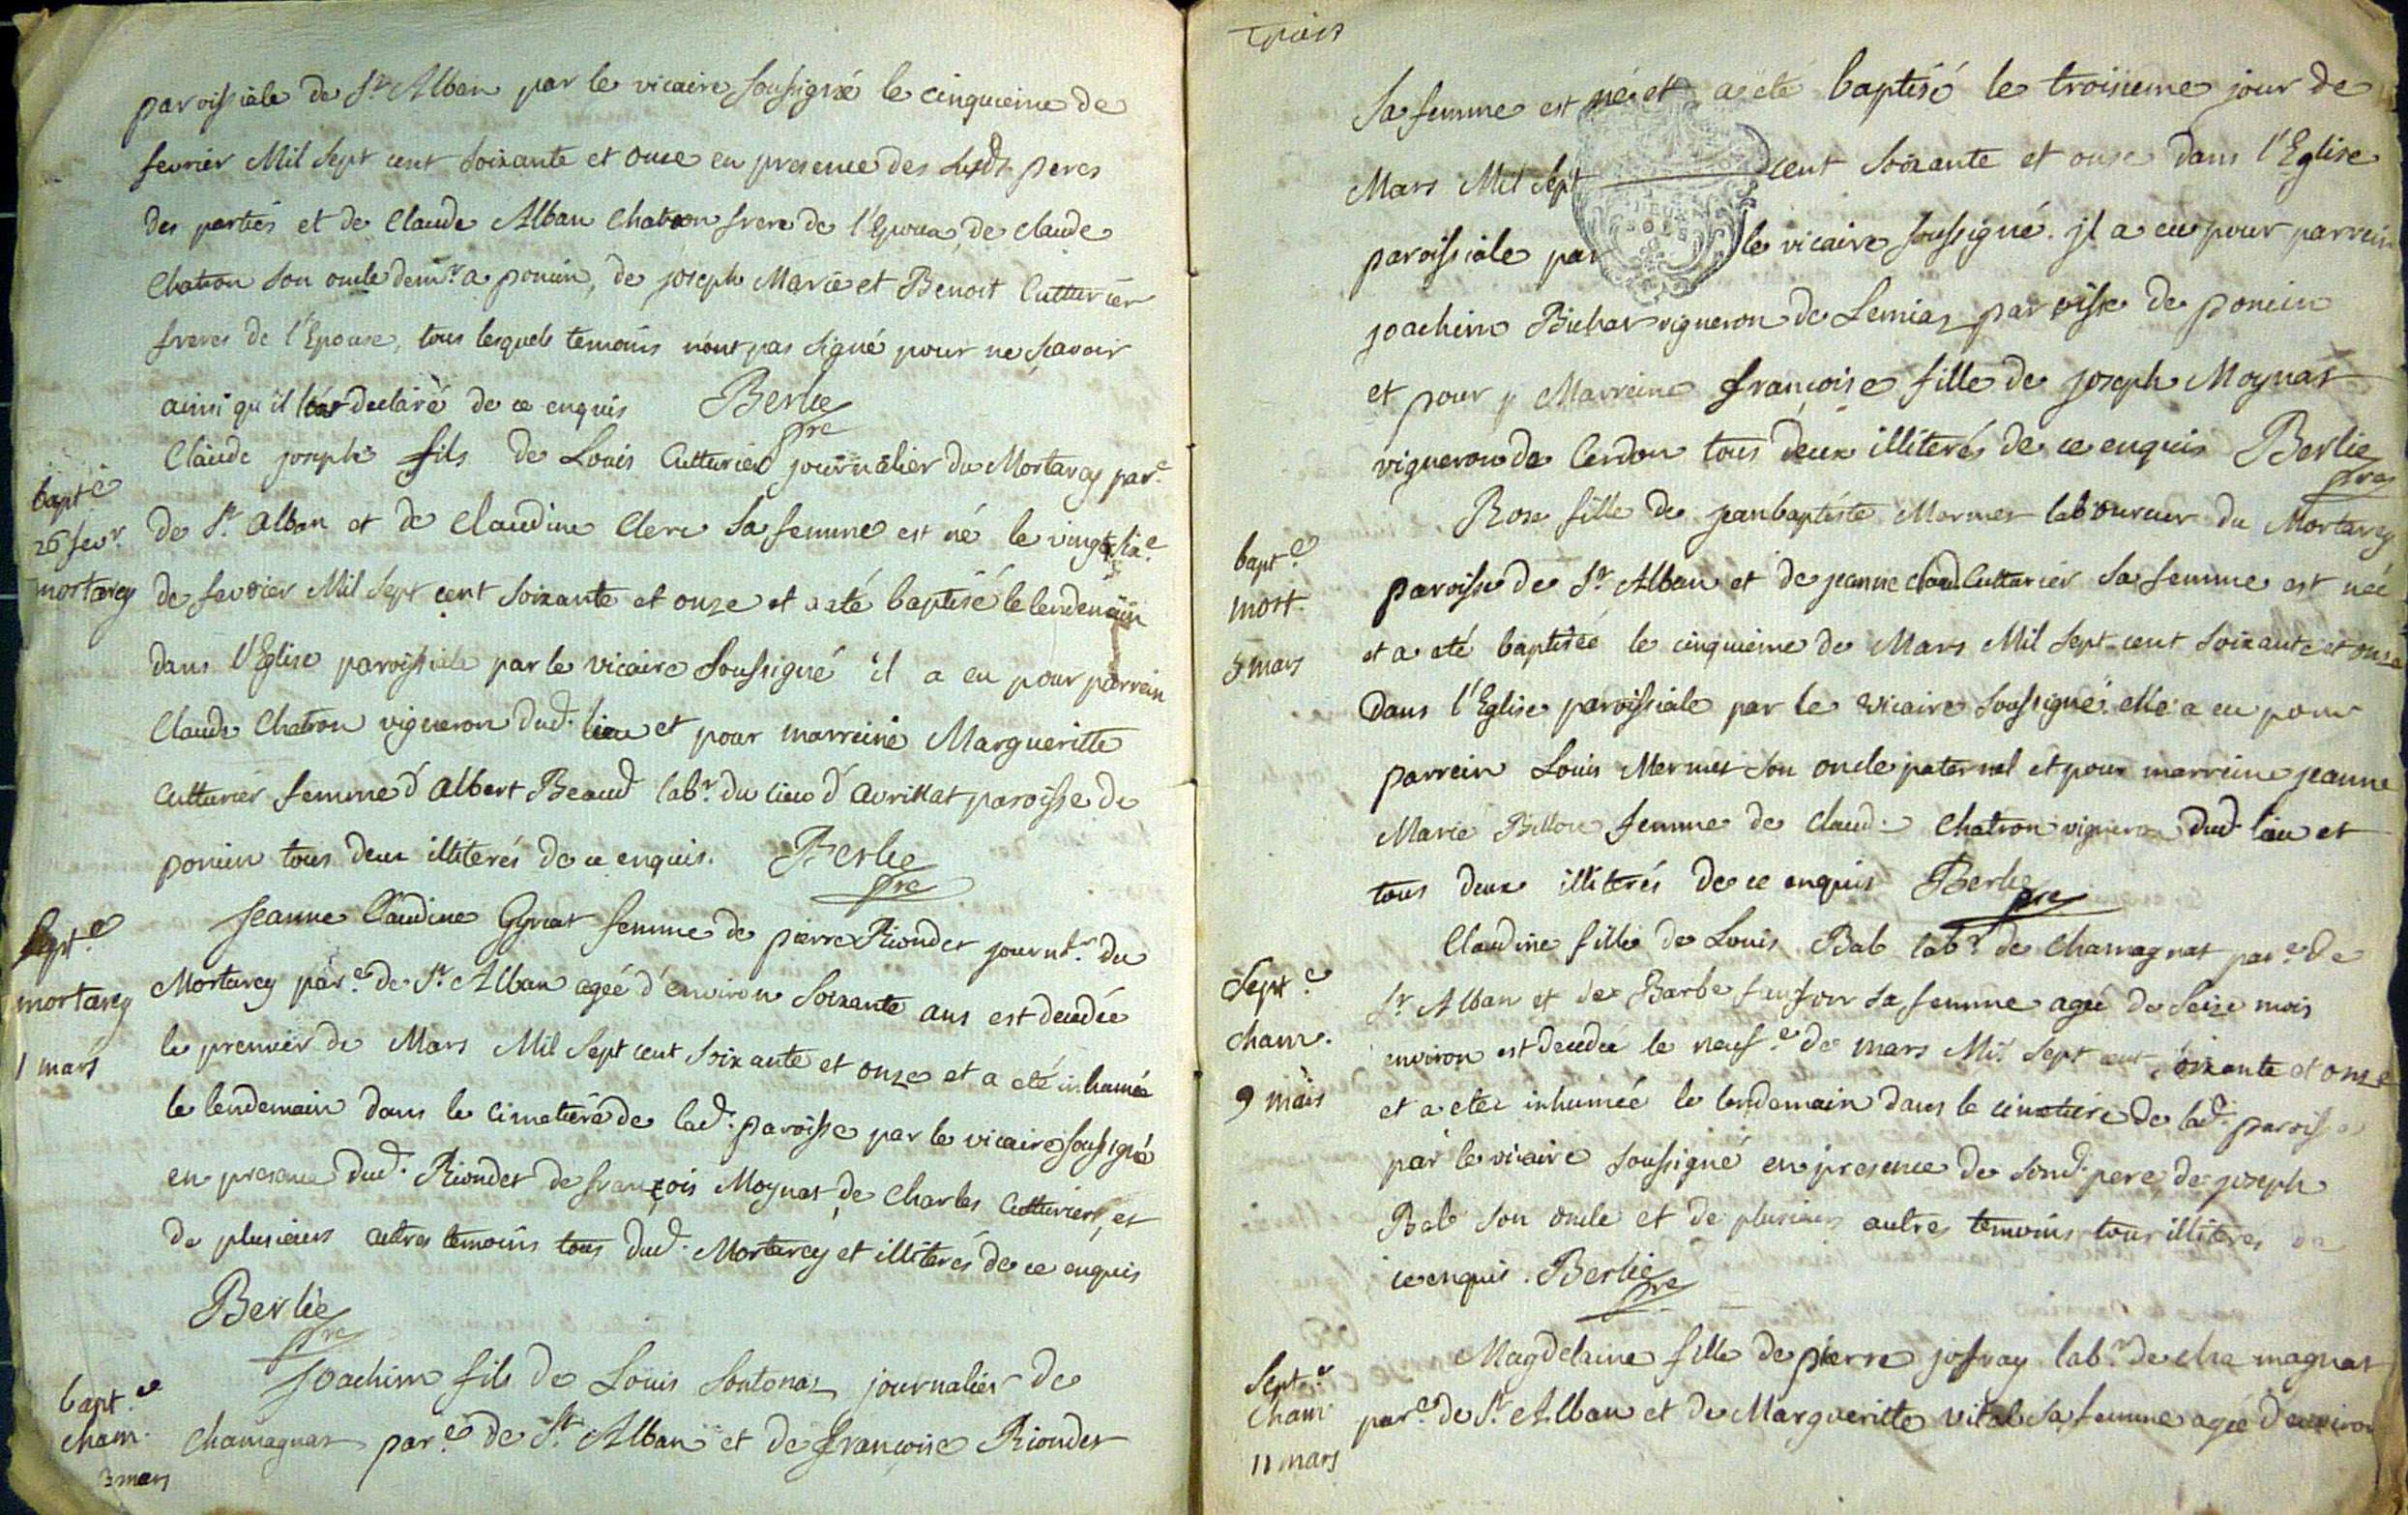 paroissiale de St Alban par le vicaire soussigné le cinquieme de
fevrier Mil sept cent soixante et onze en presence des susdts peres
des parties et de Claude Alban Chatron frere de l'Epoux, de claude
Chatron son oncle demrt a poncin, de joseph Marie et Benoit Cutturier
freres de l'Epouse, tous lesquels temoins n'ont pas signé pour ne sçavoir
ainsi qu'il l'ont declaré de ce enquis Berlie
pre
bapt.e
26 fevr.
mortarey
Claude joseph fils de Louis Cutturier journalier du Mortarey par.e
de St. alban et de Claudine Clerc sa femme est né le vingt six.e
de fevrier Mil sept cent soixante et onze et a eté baptisé le lendemain
dans l'Eglise paroissiale par le vicaire soussigné il a eu pour parrein
Claude Chatron vigneron dud. lieu et pour marreine Margueritte
Cutturier femme d'albert Beaud labr. du lieu d'avrillat paroisse de
poncin tous deux illiterés de ce enquis. Berlie
pre
Sept.e
mortarey
1 mars
Jeanne Claudine Gyriat femme de pierre Riondet journlr. du
Mortarey par.e de St Alban ageé d'environ soixante ans est decedée
le premier de Mars Mil sept cent soixante et onze et a eté inhumée
le lendemain dans le cimetiere de lad. paroisse par le vicaire soussigné
en presence dud. Riondet de françois Moynat de Charles Cutturier, et
de plusieurs autres temoins tous dud. Mortarey et illiterés de ce enquis
Berlie
pre
bapt.e
cham.
3 mars
Joachim fils de Louis Sontonaz journalier de
Chamagnat par.e de St Alban et de françoise Riondet
trois
sa femme est né et a eté baptisé le troisieme jour de
Mars Mil sept cent soixante et onze dans l'Eglise
DEUX
SOLS
paroissiale par le vicaire soussigné. jl a eu pour parrein
joachim Bichat vigneron de Lemiaz paroisse de poncin
et pour Marreine françoise fille de joseph Moynat
vigneron de Cerdon tous deux illiterés de ce enquis Berlie
pre
bapt.e
mort.
5 mars
Rose fille de jeanbaptiste Mermet laboureur du Mortarey
paroisse de St Alban et de jeanne claud. Cutturier sa femme est née
et a eté baptisée le cinquieme de Mars Mil sept cent soixante et onze
dans l'Eglise paroissiale par le vicaire soussigné. elle a eu pour
parrein Louis Mermet son oncle paternel et pour marreine jeanne
Marie Billon femme de claud. Chatron vigneron dud. lieu et
tous deux illiterés de ce enquis Berlie
pre
Sept.e
cham.
9 mars
Claudine fille de Louis Bab labr. de Chamagnat par.e de
St Alban et de Barbe sa femme ageé de seize mois
environ est decedée le neuf.e de mars Mil sept cent soixante et onze
et a eté inhumée le lendemain dans le cimetiere de lad. paroisse
par le vicaire soussigné en presence de sond. pere, de joseph
Bab son oncle et de plusieurs autres temoins tous illiterés de
ce enquis. Berlie
pre
Sept.e
cham
11 mars
Magdelaine fille de pierre jofray labr. de chamagnat
par.e de St. Alban et de Margueritte vital sa femme ageé d'environ